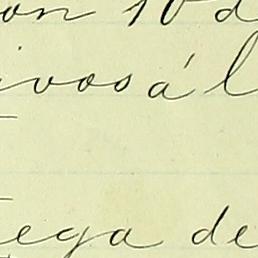 on 10 d
ivos á l
ega de